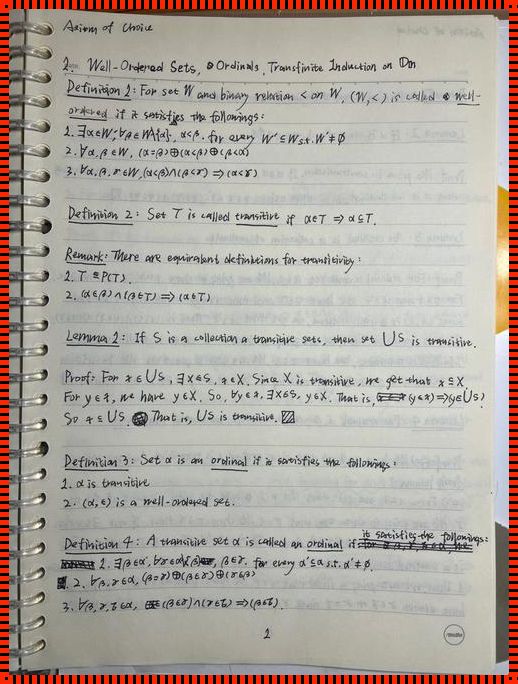 Axiom of Choice
2. Well-Ordered Sets, Ordinals, Transfinite Induction on On
Definition 1: For set W and binary relation < on W, (W,<) is called a well-
ordered if it satisfies the followings:
1. ∃α∈W' ∀β∈W'\{α}, α<β. for every W'⊆W s.t. W'≠∅
2. ∀α,β∈W, (α=β)⊕(α<β)⊕(β<α)
3. ∀α,β,γ∈W, (α<β)∧(β<γ) ⇒ (α<γ)
Definition 2: Set T is called transitive if α∈T ⇒ α⊆T.
Remark: There are equivalent definitions for transitivity:
1. T ⊆ P(T).
2. (α∈β)∧(β∈T) ⇒ (α∈T)
Lemma 1: If S is a collection a transitive sets, then set ∪S is transitive.
Proof: For x∈∪S, ∃X∈S, x∈X. Since X is transitive, we get that x⊆X.
For y∈x, we have y∈X. So, ∀y∈x, ∃X∈S, y∈X. That is, (y∈x)⇒(y∈∪S)
So x⊆∪S. That is, ∪S is transitive.
Definition 3: Set α is an ordinal if it satisfies the followings:
1. α is transitive
2. (α,∈) is a well-ordered set.
Definition 4: A transitive set α is called an ordinal if it satisfies the followings:
1. ∃β∈α' ∀γ∈α'\{β}, β∈γ. for every α'⊆α s.t. α'≠∅.
2. ∀β,γ∈α, (β=γ)⊕(β∈γ)⊕(γ∈β)
3. ∀β,γ,ζ∈α, (β∈γ)∧(γ∈ζ) ⇒ (β∈ζ).
2